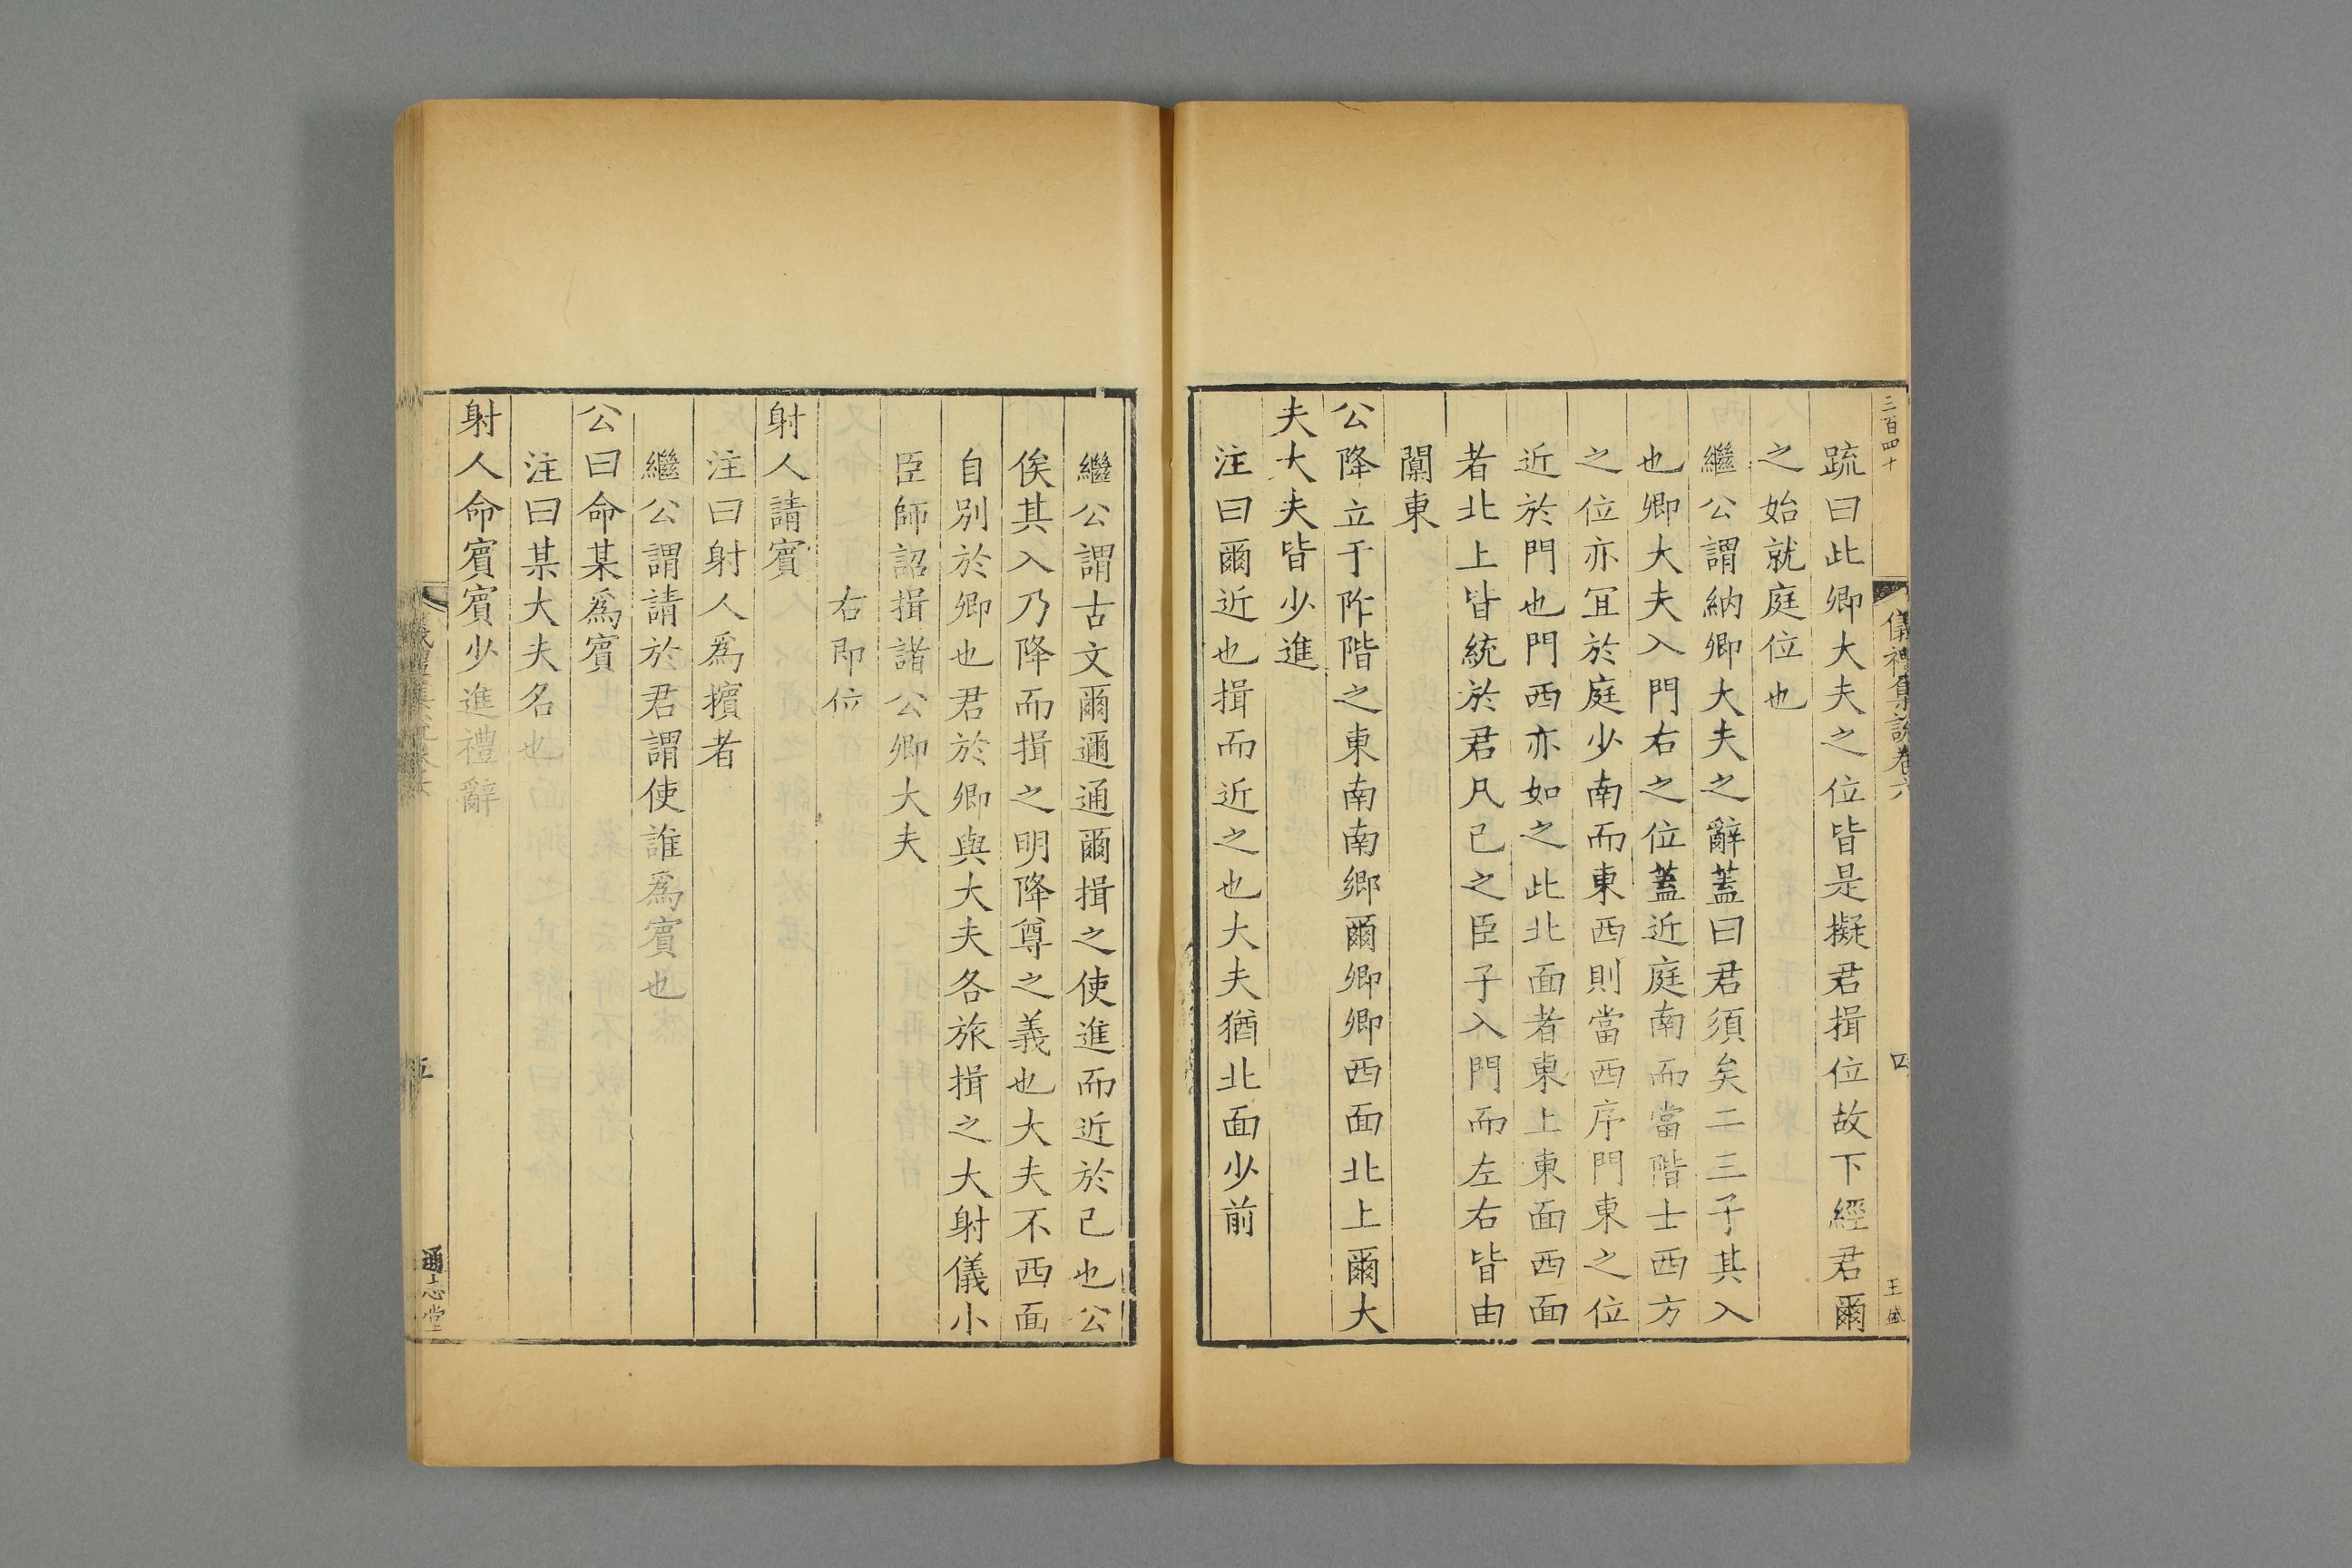 三百四十
儀禮集説卷六
四
王盛
疏曰此卿大夫之位皆是擬君揖位故下經君爾
之始就庭位也
繼公謂納卿大夫之辭蓋曰君須矣二三子其入
也卿大夫入門右之位蓋近庭南而當階士西方
之位亦冝於庭少南而東西則當西序門東之位
近於門也門西亦如之此北面者東上東面西面
者北上皆統於君凡己之臣子入門而左右皆由
闑東
公降立于阼階之東南南鄉爾卿卿西面北上爾大
夫大夫皆少進
注曰爾近也揖而近之也大夫猶北面少前
繼公謂古文爾邇通爾揖之使進而近於己也公
俟其入乃降而揖之明降尊之義也大夫不西面
自別於卿也君於卿與大夫各旅揖之大射儀小
臣師詔揖諸公卿大夫
右即位
射人請賓
注曰射人爲擯者
繼公謂請於君謂使誰爲賓也
公曰命某爲賓
注曰某大夫名也
射人命賓賓少進禮辭
五
通志堂